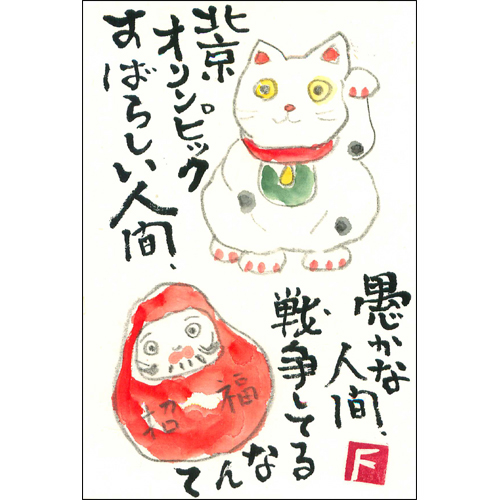 北京
オリンピック
すばらしい人間、
愚かな
人間、
戦争してる
なんて
招福
F